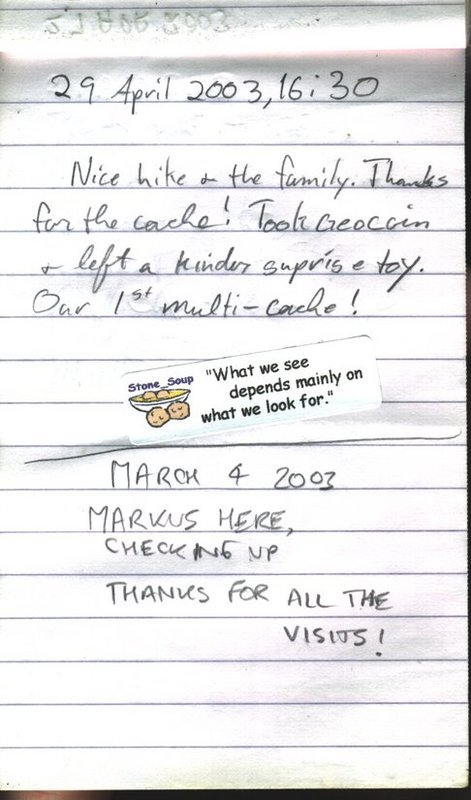 29 April 2003, 16:30
Nice hike & the family. Thanks
for the cache! Took Geocoin
& left a kinder suprise toy.
Our 1st multi-cache!
Stone_Soup
"What we see
depends mainly on
what we look for."
MARCH 4 2003
MARKUS HERE,
CHECKING UP
THANKS FOR ALL THE
VISITS!